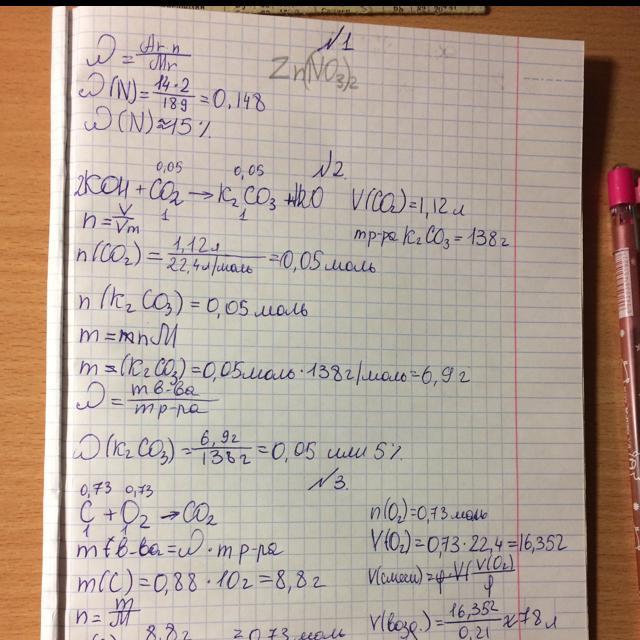 №1
Zn(NO₃)₂
ω = Ar n / Mr
ω(N) = 14·2 / 189 = 0,148
ω(N) ≈ 15%
№2
0,05 0,05
2KOH + CO₂ → K₂CO₃ + H₂O V(CO₂) = 1,12 л
1 1
n = V / Vm mр-ра K₂CO₃ = 138 г
n(CO₂) = 1,12 л / 22,4 л/моль = 0,05 моль
n(K₂CO₃) = 0,05 моль
m = nM
m = (K₂CO₃) = 0,05 моль · 138 г/моль = 6,9 г
ω = m в-ва / m р-ра
ω(K₂CO₃) = 6,9 г / 138 г = 0,05 или 5%
№3.
0,73 0,73
C + O₂ → CO₂ n(O₂) = 0,73 моль
1 1
m в-ва = ω · m р-ра V(O₂) = 0,73 · 22,4 = 16,352
m(C) = 0,88 · 10 г = 8,8 г V(смеси) = V(O₂) / φ
n = m / M V(возд) = 16,352 / 0,21 ≈ 78 л
8,8 г = 0,73 моль